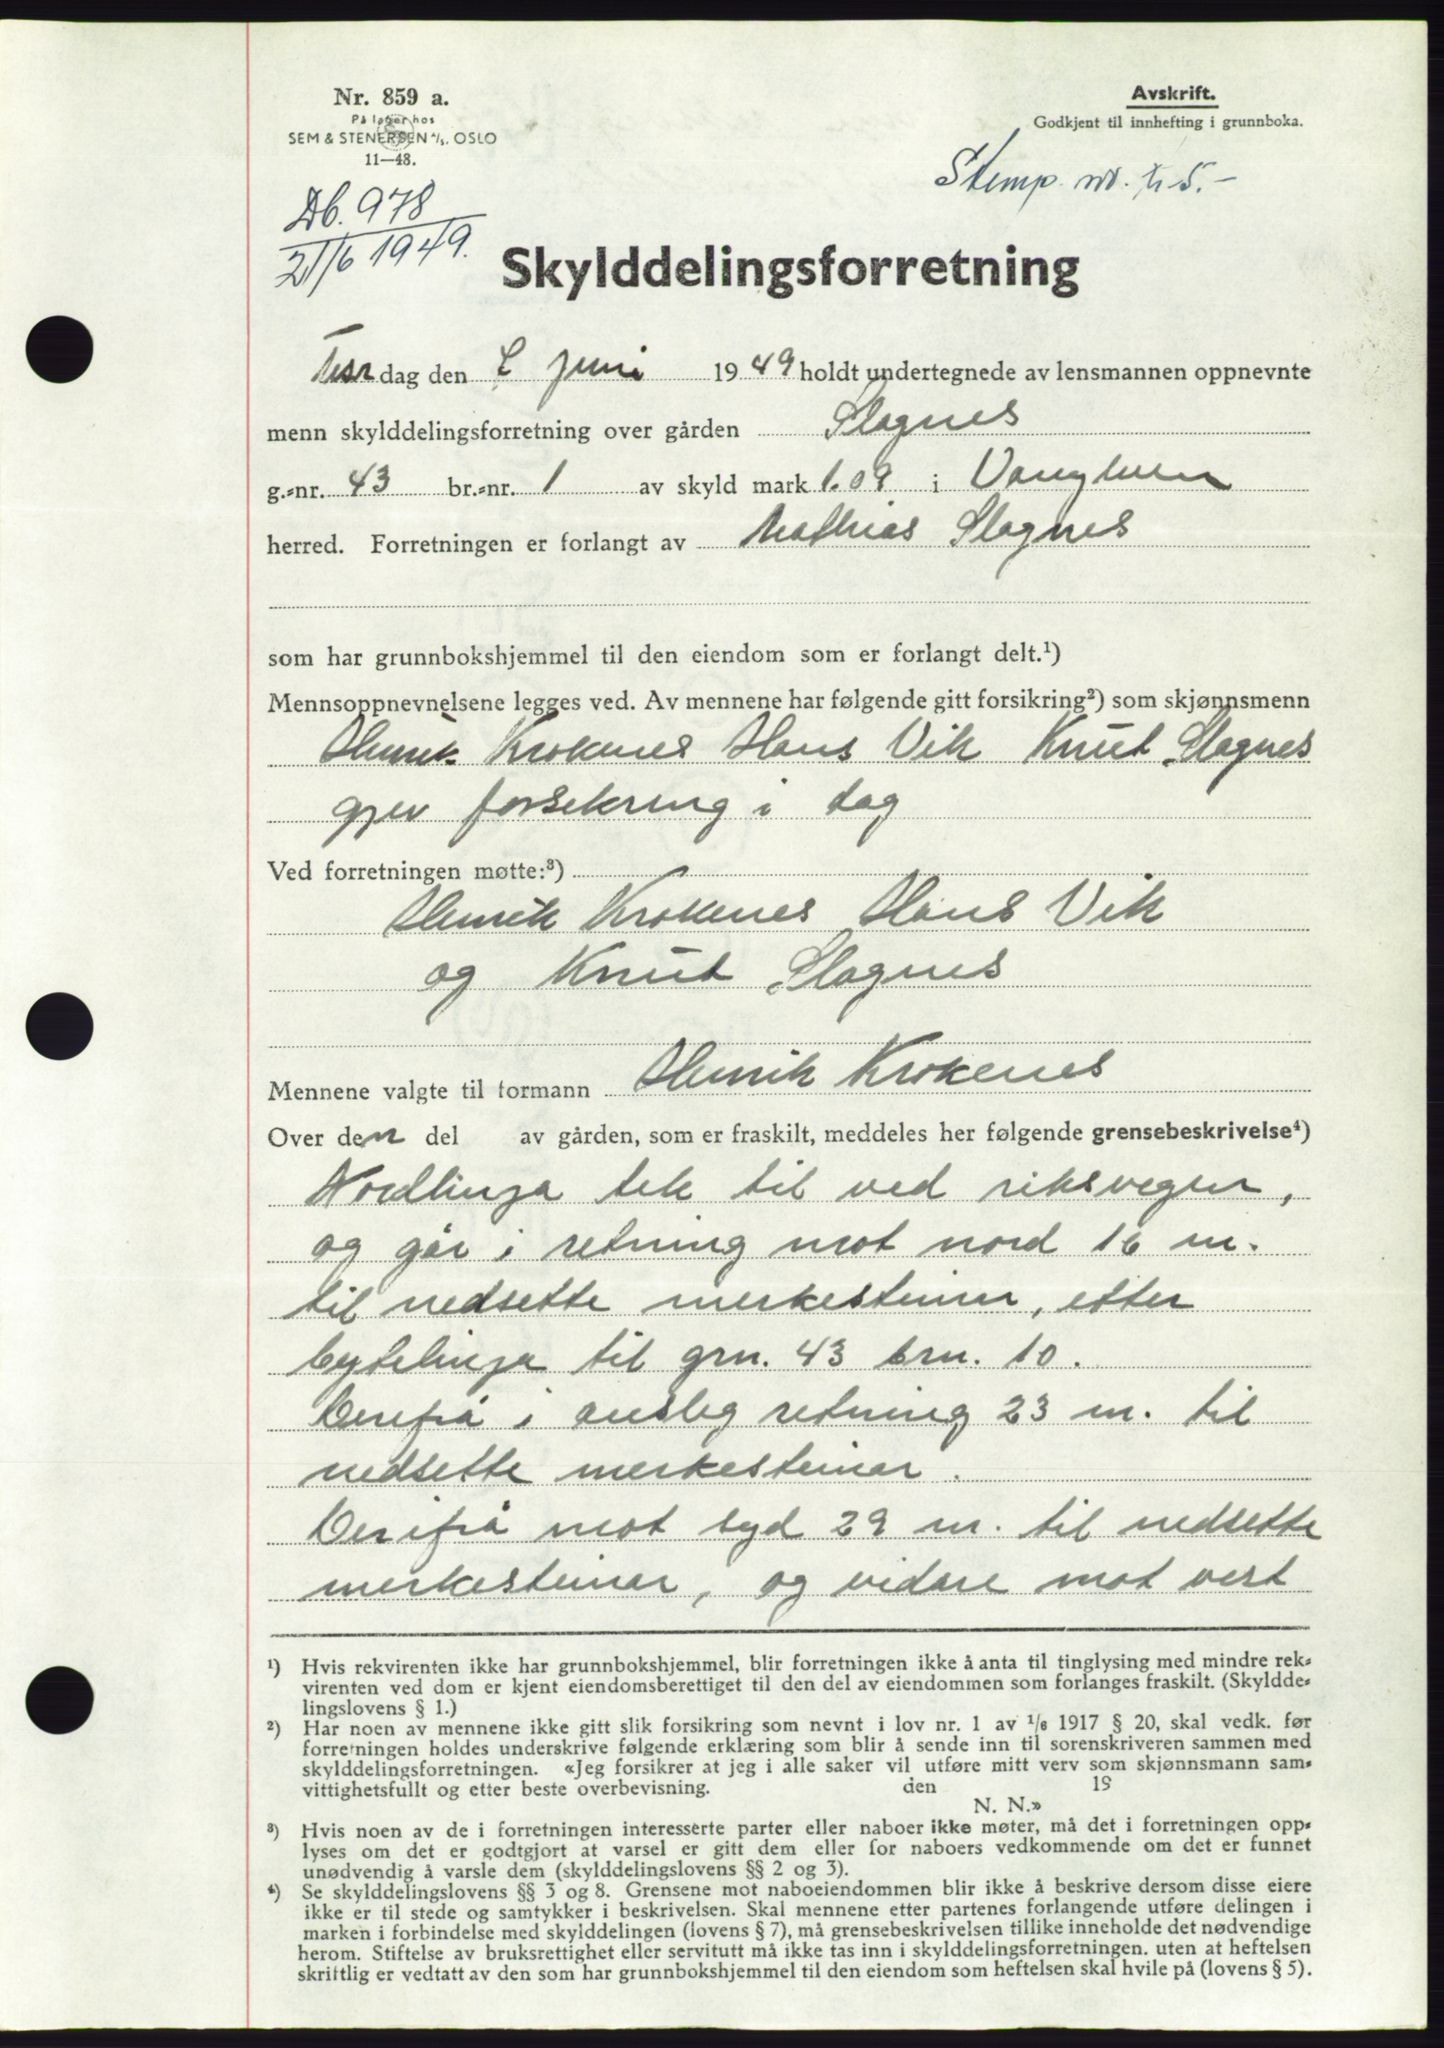 Nr. 859 a.
På lager hos
SEM & STENERSEN A/S, OSLO
11—48.
Avskrift.
Godkjent til innhefting i grunnboka.
Stemp. m. kr 5.-
Db. 978
21/6 1949.
Skylddelingsforretning
dag den 7 juni 1949 holdt undertegnede av lensmannen oppnevnte
menn skylddelingsforretning over gården Slagnes
g.-nr. 43 br.-nr. 1 av skyld mark 1.09 i Vanylven
herred. Forretningen er forlangt av Mathias Slagnes
som har grunnbokshjemmel til den eiendom som er forlangt delt.¹)
Mennsoppnevnelsene legges ved. Av mennene har følgende gitt forsikring²) som skjønnsmenn
Henrik Krokenes Hans Vik Knut Slagnes
gjev forsekring i dag
Ved forretningen møtte:³)
Henrik Krokenes Hans Vik
og Knut Slagnes
Mennene valgte til formann Henrik Krokenes
Over den del av gården, som er fraskilt, meddeles her følgende grensebeskrivelse⁴)
Nordlinja tek til ved riksvegen,
og går i retning mot nord 16 m.
til nedsette merkesteinar, etter
bytelinja til grn. 43 brn. 10.
Derifrå i austleg retning 23 m. til
nedsette merkesteinar.
Derifrå mot syd 29 m. til nedsette
merkesteinar, og vidare mot vest
¹) Hvis rekvirenten ikke har grunnbokshjemmel, blir forretningen ikke å anta til tinglysing med mindre rek-
virenten ved dom er kjent eiendomsberettiget til den del av eiendommen som forlanges fraskilt. (Skyldde-
lingslovens § 1.)
²) Har noen av mennene ikke gitt slik forsikring som nevnt i lov nr. 1 av 1/6 1917 § 20, skal vedk. før
forretningen holdes underskrive følgende erklæring som blir å sende inn til sorenskriveren sammen med
skylddelingsforretningen. «Jeg forsikrer at jeg i alle saker vil utføre mitt verv som skjønnsmann sam-
vittighetsfullt og etter beste overbevisning. den 19
N. N.»
³) Hvis noen av de i forretningen interesserte parter eller naboer ikke møter, må det i forretningen opp-
lyses om det er godtgjort at varsel er gitt dem eller for naboers vedkommende om det er funnet
unødvendig å varsle dem (skylddelingslovens §§ 2 og 3).
⁴) Se skylddelingslovens §§ 3 og 8. Grensene mot naboeiendommen blir ikke å beskrive dersom disse eiere
ikke er til stede og samtykker i beskrivelsen. Skal mennene etter partenes forlangende utføre delingen i
marken i forbindelse med skylddelingen (lovens § 7), må grensebeskrivelsen tillike inneholde det nødvendige
herom. Stiftelse av bruksrettighet eller servitutt må ikke tas inn i skylddelingsforretningen. uten at heftelsen
skriftlig er vedtatt av den som har grunnbokshjemmel til den eiendom som heftelsen skal hvile på (lovens § 5).